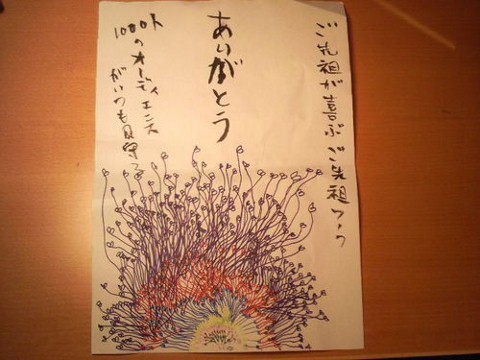 ご先祖が喜ぶご先祖ワーク
ありがとう
1000人
のオーディエンス
がいつも見守って